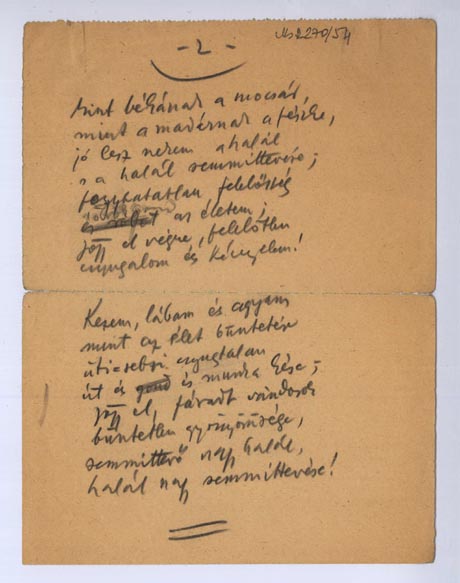 - 2 -
Ms 2270/54
mint békának a mocsár,
mint a madárnak a fészke,
jó lesz nekem a halál
s a halál semmittevése;
foghatatlan felelősség
az életem;
jőjj el végre, felelőtlen
nyugalom és kényelem!
Kezem, lábam és agyam
mint az élet büntetése
úti sebsi nyugtalan
út és gond és munka kése;
jőjj el, fáradt vándorok
büntetlen gyönyörűsége,
semmittevő nagy halál,
halál nagy semmittevése!